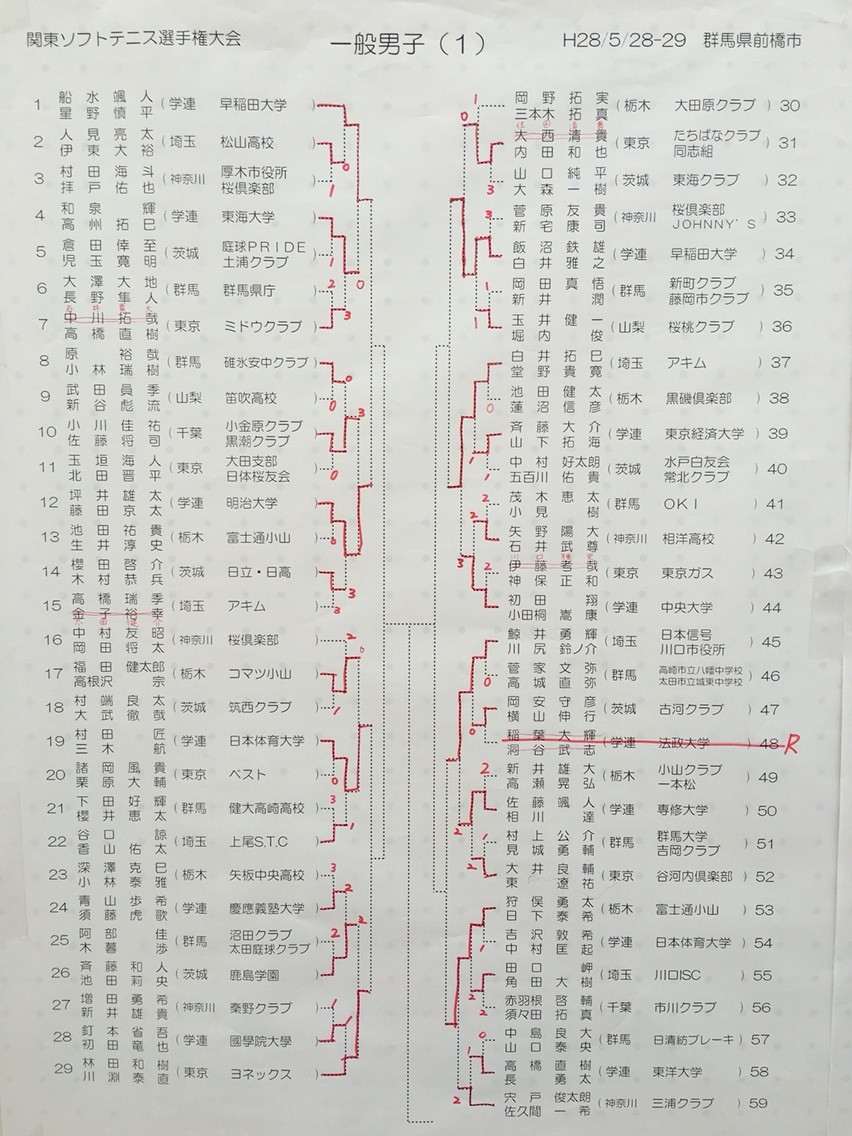 関東ソフトテニス選手権大会 一般男子(1) H28/5/28-29 群馬県前橋市
1 船水颯人 星野慎平 (学連 早稲田大学)
2 人見亮太 伊東大裕 (埼玉 松山高校)
3 村田海斗 拝戸佑也 (神奈川 厚木市役所 桜倶楽部)
4 和泉輝 高州拓巳 (学連 東海大学)
5 倉田倖至 児玉寛明 (茨城 庭球PRIDE 土浦クラブ)
6 大澤大地 長野隼人 (群馬 群馬県庁)
7 中川拓哉 高橋直樹 (東京 ミドウクラブ)
8 原裕哉 小林瑞樹 (群馬 碓氷安中クラブ)
9 武田員季 新谷彪流 (山梨 笛吹高校)
10 小川佳祐 佐藤将司 (千葉 小金原クラブ 黒潮クラブ)
11 玉垣海人 北田晋平 (東京 大田支部 日体桜友会)
12 坪井雄太 藤田京太 (学連 明治大学)
13 池田祐貴 生井淳史 (栃木 富士通小山)
14 櫻田啓介 木村恭兵 (茨城 日立・日高)
15 高橋瑞季 金子裕幸 (埼玉 アキム)
16 中村友昭 岡田将太 (神奈川 桜倶楽部)
17 福田健太郎 高根沢宗 (栃木 コマツ小山)
18 村端良太 大武徹哉 (茨城 筑西クラブ)
19 村田匠 三木航 (学連 日本体育大学)
20 諸岡風貴 栗原大輔 (東京 ベスト)
21 下田好輝 櫻井恵太 (群馬 健大高崎高校)
22 谷口諒 香山佑太 (埼玉 上尾S.T.C)
23 深澤克巳 小林泰雅 (栃木 矢板中央高校)
24 青山歩希 須藤虎歌 (学連 慶應義塾大学)
25 阿部佳 木暮渉 (群馬 沼田クラブ 太田庭球クラブ)
26 斉藤和人 池田莉央 (茨城 鹿島学園)
27 増田勇希 新井雄貴 (神奈川 秦野クラブ)
28 釘本省吾 初田竜也 (学連 國學院大學)
29 林田和樹 川淵泰直 (東京 ヨネックス)
岡野拓実 三本木拓真 (栃木 大田原クラブ) 30
大西清貴 内田和也 (東京 たちばなクラブ 同志組) 31
山口純平 大森一樹 (茨城 東海クラブ) 32
菅原友貴 新宅康司 (神奈川 桜倶楽部 JOHNNY'S) 33
飯沼鉄雄 白井雅之 (学連 早稲田大学) 34
岡田真悟 新井潤 (群馬 新町クラブ 藤岡市クラブ) 35
玉井健一 堀内俊 (山梨 桜桃クラブ) 36
白井拓巳 堂野貴寛 (埼玉 アキム) 37
池田健太 蓮沼信彦 (栃木 黒磯倶楽部) 38
斉藤大介 山下拓海 (学連 東京経済大学) 39
中村好太朗 五百川佑貴 (茨城 水戸白友会 常北クラブ) 40
茂木恵太 小見樹 (群馬 OKI) 41
矢野陽大 石井武尊 (神奈川 相洋高校) 42
伊藤考哉 神保正和 (東京 東京ガス) 43
初田翔 小田桐嵩康 (学連 中央大学) 44
鯨井勇輝 川尻鈴ノ介 (埼玉 日本信号 川口市役所) 45
菅家文弥 高城直弥 (群馬 高崎市立八幡中学校 太田市立城東中学校) 46
岡安守彦 横山伸行 (茨城 古河クラブ) 47
稲葉大輝 洞谷武志 (学連 法政大学) 48 R
新井雄大 高瀬晃弘 (栃木 小山クラブ 一本松) 49
佐藤颯人 相川達 (学連 専修大学) 50
村上公介 見城勇輔 (群馬 群馬大学 吉岡クラブ) 51
大井良輔 東遼祐 (東京 谷河内倶楽部) 52
狩俣勇太 日下泰希 (栃木 富士通小山) 53
吉沢敦希 中村匡起 (学連 日本体育大学) 54
田口岬 角田大樹 (埼玉 川口ISC) 55
赤羽根啓輔 須々田拓真 (千葉 市川クラブ) 56
中島良大 山口泰央 (群馬 日清紡ブレーキ) 57
高橋直樹 長勇太 (学連 東洋大学) 58
宍戸俊太朗 佐久間一希 (神奈川 三浦クラブ) 59